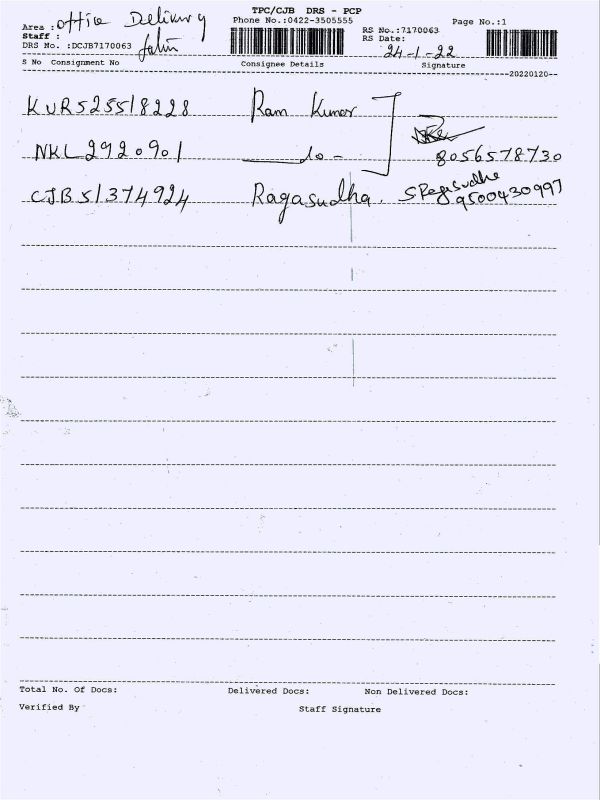 TPC/CJB DRS - PCP
Area : office Delivery
Phone No.:0422-3505555
Page No.:1
Staff :
RS No.:7170063
DRS No. :DCJB7170063
RS Date: 24-1-22
S No Consignment No Consignee Details Signature
--20220120--
KUR525518228 Ram Kumar
NKL2920901 do - 8056578730
CJB51374924 Ragasudha. S Ragasudha
9500430997
Total No. Of Docs: Delivered Docs: Non Delivered Docs:
Verified By Staff Signature